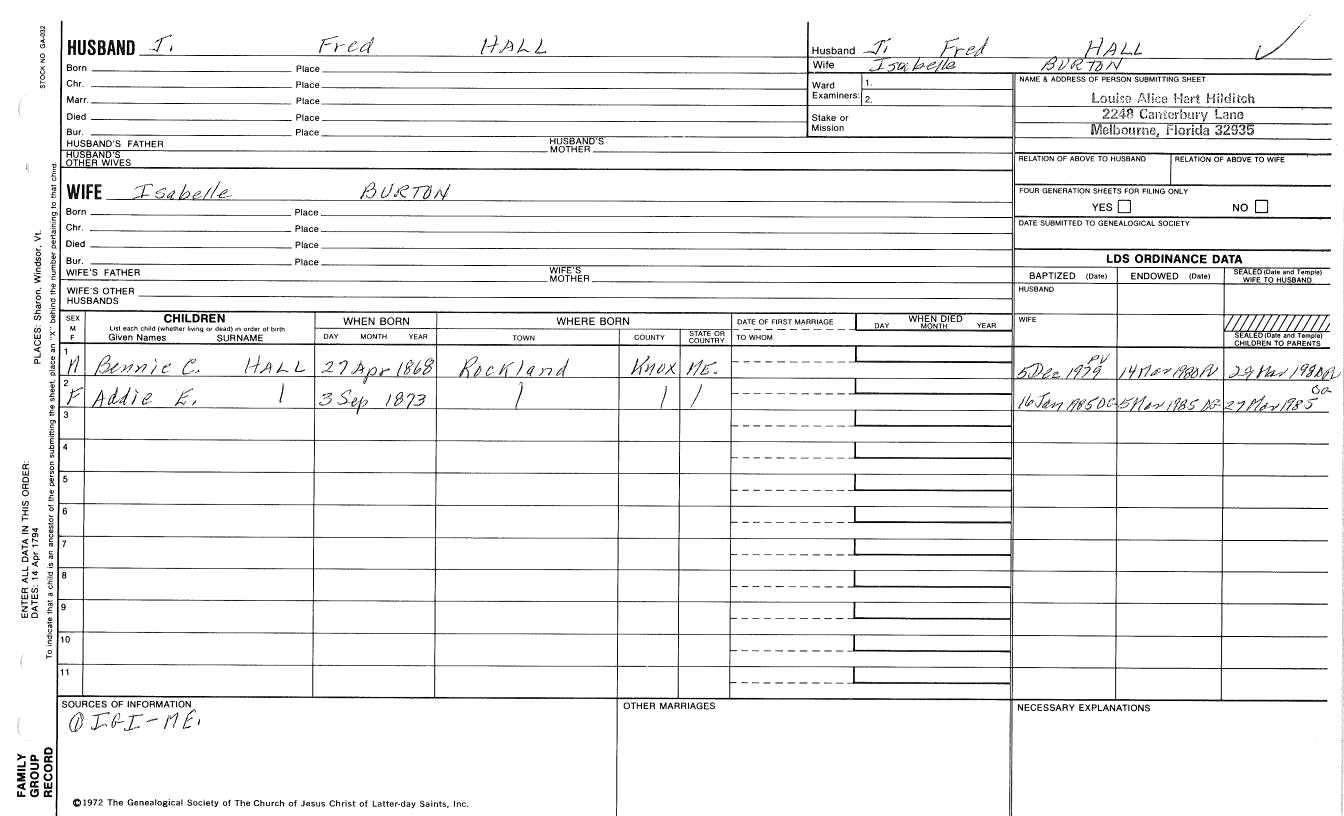 STOCK NO GA-002
HUSBAND J. Fred HALL
Born Place
Chr. Place
Marr. Place
Died Place
Bur. Place
HUSBAND'S FATHER HUSBAND'S MOTHER
HUSBAND'S OTHER WIVES
Husband J. Fred HALL
Wife Isabelle BURTON
Ward Examiners: 1.
2.
Stake or Mission
NAME & ADDRESS OF PERSON SUBMITTING SHEET
Louise Alice Hart Hilditch
2248 Canterbury Lane
Melbourne, Florida 32935
RELATION OF ABOVE TO HUSBAND RELATION OF ABOVE TO WIFE
FOUR GENERATION SHEETS FOR FILING ONLY
YES NO
DATE SUBMITTED TO GENEALOGICAL SOCIETY
WIFE Isabelle BURTON
Born Place
Chr. Place
Died Place
Bur. Place
WIFE'S FATHER WIFE'S MOTHER
WIFE'S OTHER HUSBANDS
LDS ORDINANCE DATA
BAPTIZED (Date) ENDOWED (Date) SEALED (Date and Temple) WIFE TO HUSBAND
HUSBAND
WIFE
SEALED (Date and Temple) CHILDREN TO PARENTS
SEX M F
CHILDREN
List each child (whether living or dead) in order of birth
Given Names SURNAME
WHEN BORN
DAY MONTH YEAR
WHERE BORN
TOWN COUNTY STATE OR COUNTRY
DATE OF FIRST MARRIAGE
TO WHOM
WHEN DIED
DAY MONTH YEAR
1 M Bennie C. HALL 27 Apr 1868 Rockland Knox ME. 5 Dec 1979 PV 14 Mar 1980 PV 29 Mar 1980 PV
2 F Addie E. 3 Sep 1873 16 Jan 1985 DC 5 Mar 1985 DC 27 Mar 1985
3
4
5
6
7
8
9
10
11
SOURCES OF INFORMATION
① IGI-ME.
OTHER MARRIAGES
NECESSARY EXPLANATIONS
©1972 The Genealogical Society of The Church of Jesus Christ of Latter-day Saints, Inc.
FAMILY GROUP RECORD
ENTER ALL DATA IN THIS ORDER:
DATES: 14 Apr 1794
PLACES: Sharon, Windsor, Vt.
To indicate that a child is an ancestor of the person submitting the sheet, place an "X" behind the number pertaining to that child.